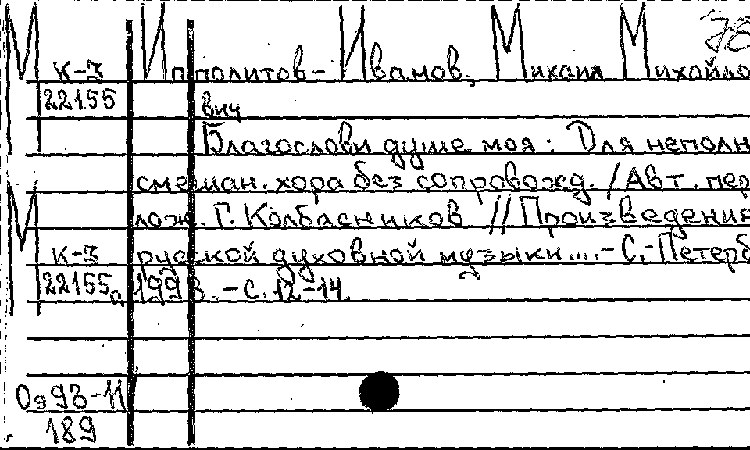 М К-3 Ипполитов-Иванов, Михаил Михайло
22155 вич
Благослови душе моя: Для неполн
смешан. хора без сопровожд. / Авт. пер
лож. Г. Колбасников // Произведение
М К-3 русской духовной музыки... - С.-Петерб
22155а 1993. - С. 12-14.
Оэ 93-11/
189